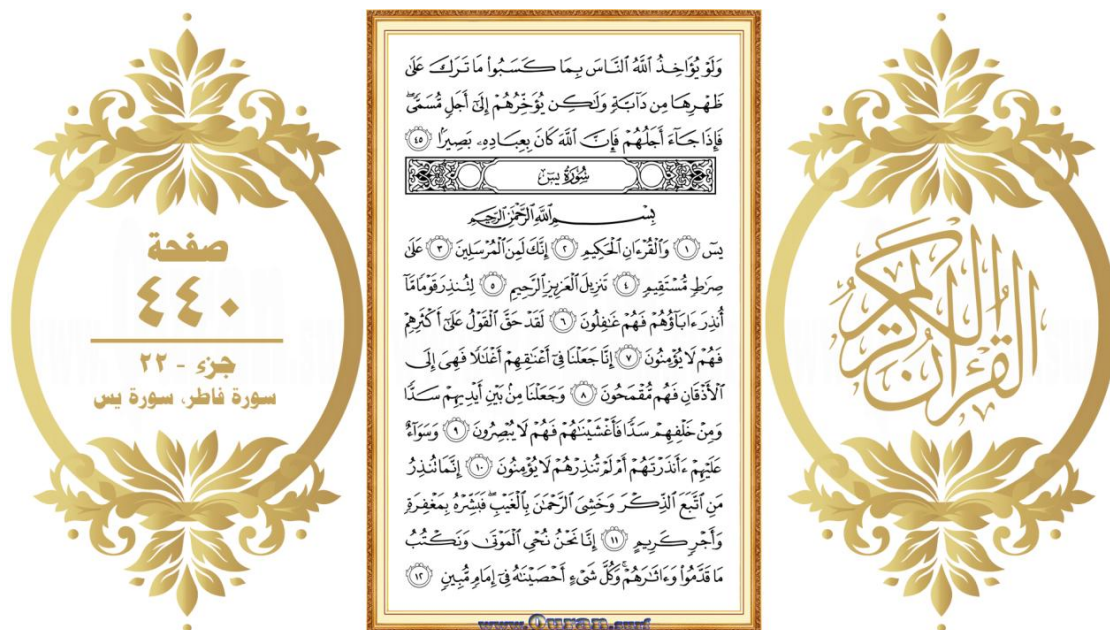 صفحة
٤٤٠
جزء - ٢٢
سورة فاطر، سورة يس
وَلَوْ يُؤَاخِذُ ٱللَّهُ ٱلنَّاسَ بِمَا كَسَبُوا۟ مَا تَرَكَ عَلَىٰ
ظَهْرِهَا مِن دَآبَّةٍ وَلَـٰكِن يُؤَخِّرُهُمْ إِلَىٰٓ أَجَلٍ مُّسَمًّى ۖ
فَإِذَا جَآءَ أَجَلُهُمْ فَإِنَّ ٱللَّهَ كَانَ بِعِبَادِهِۦ بَصِيرًۢا ٤٥
سُورَةُ يسٓ
بِسْمِ ٱللَّهِ ٱلرَّحْمَـٰنِ ٱلرَّحِيمِ
يسٓ ١ وَٱلْقُرْءَانِ ٱلْحَكِيمِ ٢ إِنَّكَ لَمِنَ ٱلْمُرْسَلِينَ ٣ عَلَىٰ
صِرَٰطٍ مُّسْتَقِيمٍ ٤ تَنزِيلَ ٱلْعَزِيزِ ٱلرَّحِيمِ ٥ لِتُنذِرَ قَوْمًا مَّآ
أُنذِرَ ءَابَآؤُهُمْ فَهُمْ غَـٰفِلُونَ ٦ لَقَدْ حَقَّ ٱلْقَوْلُ عَلَىٰٓ أَكْثَرِهِمْ
فَهُمْ لَا يُؤْمِنُونَ ٧ إِنَّا جَعَلْنَا فِىٓ أَعْنَـٰقِهِمْ أَغْلَـٰلًا فَهِىَ إِلَى
ٱلْأَذْقَانِ فَهُم مُّقْمَحُونَ ٨ وَجَعَلْنَا مِنۢ بَيْنِ أَيْدِيهِمْ سَدًّا
وَمِنْ خَلْفِهِمْ سَدًّا فَأَغْشَيْنَـٰهُمْ فَهُمْ لَا يُبْصِرُونَ ٩ وَسَوَآءٌ
عَلَيْهِمْ ءَأَنذَرْتَهُمْ أَمْ لَمْ تُنذِرْهُمْ لَا يُؤْمِنُونَ ١٠ إِنَّمَا تُنذِرُ
مَنِ ٱتَّبَعَ ٱلذِّكْرَ وَخَشِىَ ٱلرَّحْمَـٰنَ بِٱلْغَيْبِ ۖ فَبَشِّرْهُ بِمَغْفِرَةٍ
وَأَجْرٍ كَرِيمٍ ١١ إِنَّا نَحْنُ نُحْىِ ٱلْمَوْتَىٰ وَنَكْتُبُ
مَا قَدَّمُوا۟ وَءَاثَـٰرَهُمْ ۚ وَكُلَّ شَىْءٍ أَحْصَيْنَـٰهُ فِىٓ إِمَامٍ مُّبِينٍ ١٢
القرآن الكريم